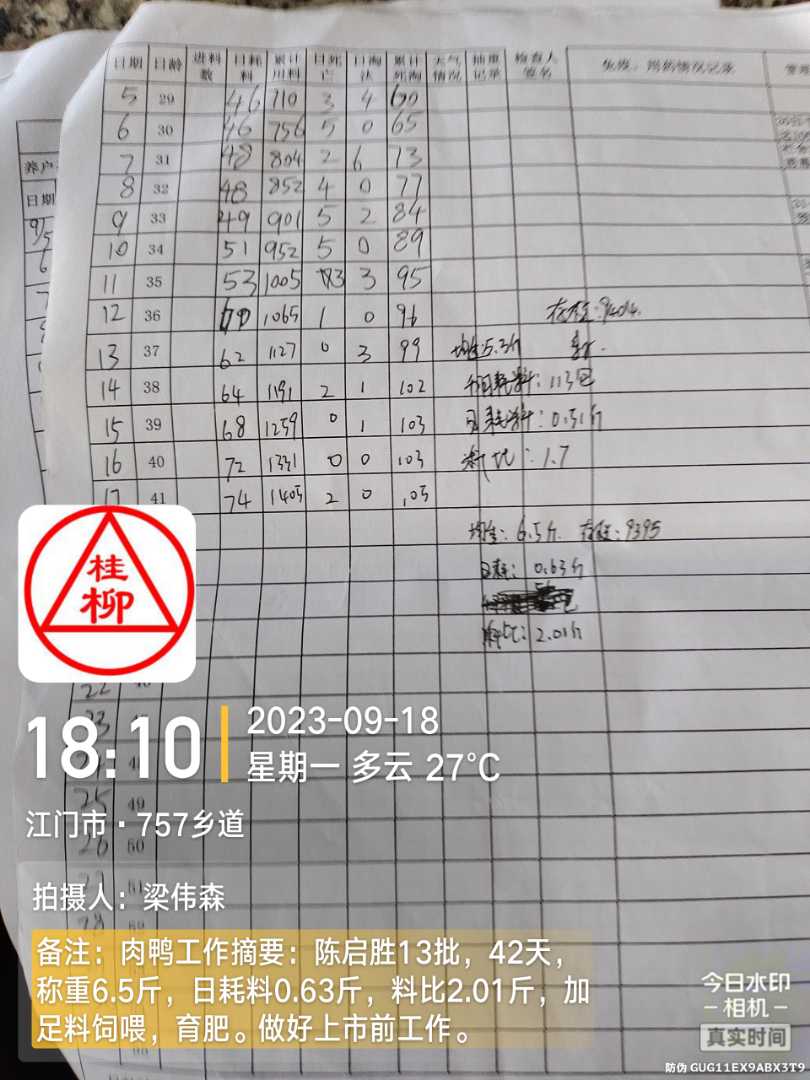 日期 日龄 进料数 日耗料 累计用料 日死亡 日淘汰 累计死淘 天气情况 抽重记录 检查人签名 免疫、用药情况记录
5 29 46 710 3 4 60
6 30 46 756 5 0 65
7 31 48 804 2 6 73
8 32 48 852 4 0 77
9 33 49 901 5 2 84
10 34 51 952 5 0 89
11 35 53 1005 3 3 95
12 36 60 1065 1 0 96 存栏:9404.
13 37 62 1127 0 3 99 均重5.3斤
14 38 64 1191 2 1 102 耗料:113包
15 39 68 1259 0 1 103 日耗料:0.51斤
16 40 72 1331 0 0 103 料比:1.7
17 41 74 1405 2 0 105
均重:6.5斤. 存栏:9395
日耗:0.63斤
料比:2.01斤
养户
日期
9/5
6
7
22
23
48
25 49
26 50
27 51
28
桂柳
18:10
2023-09-18
星期一 多云 27°C
江门市·757乡道
拍摄人:梁伟森
备注:肉鸭工作摘要:陈启胜13批,42天,
称重6.5斤,日耗料0.63斤,料比2.01斤,加
足料饲喂,育肥。做好上市前工作。
今日水印
-相机-
真实时间
防伪 GUG11EX9ABX3T9